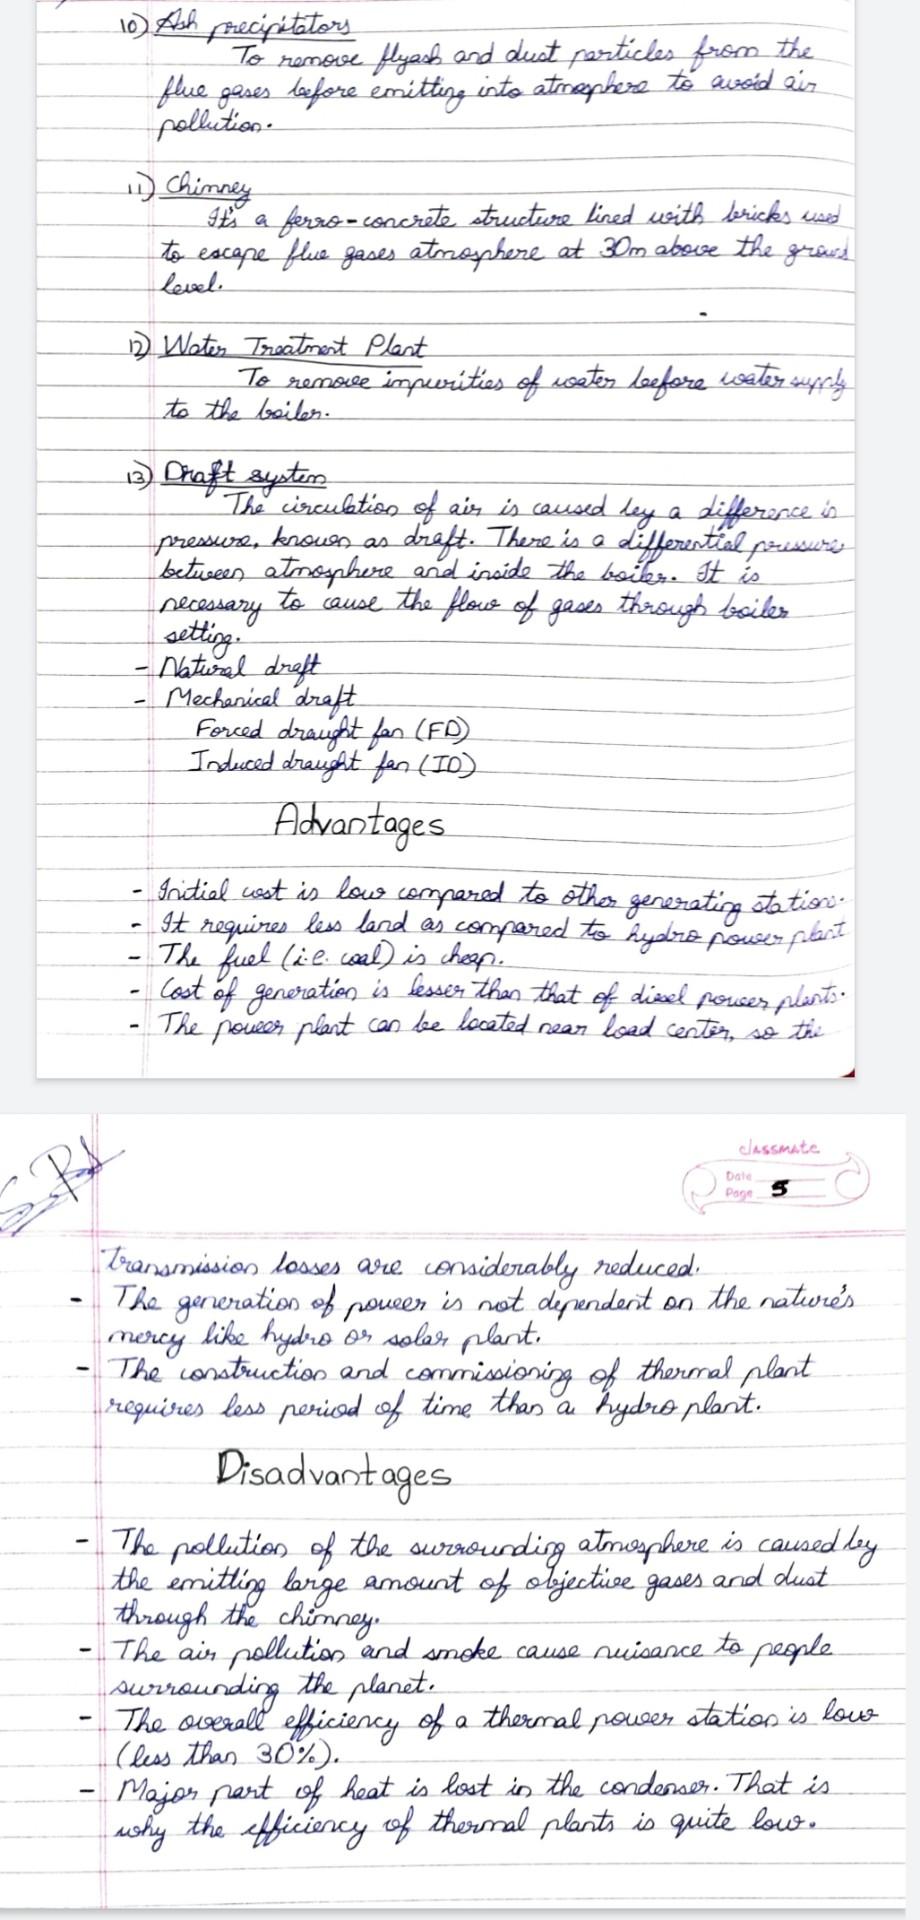 10) Ash precipitators
To remove flyash and dust particles from the
flue gases before emitting into atmosphere to avoid air
pollution.
11) Chimney
It's a ferro-concrete structure lined with bricks used
to escape flue gases atmosphere at 30m above the ground
level.
12) Water Treatment Plant
To remove impurities of water before water supply
to the boiler.
13) Draft system
The circulation of air is caused by a difference in
pressure, known as draft. There is a differential pressure
between atmosphere and inside the boiler. It is
necessary to cause the flow of gases through boiler
setting.
- Natural draft
- Mechanical draft
Forced draught fan (FD)
Induced draught fan (ID)
Advantages
- Initial cost is low compared to other generating stations.
- It requires less land as compared to hydro power plant
- The fuel (i.e. coal) is cheap.
- Cost of generation is lesser than that of diesel power plants.
- The power plant can be located near load center, so the
classmate
Date
Page 5
transmission losses are considerably reduced.
- The generation of power is not dependent on the nature's
mercy like hydro or solar plant.
- The construction and commissioning of thermal plant
requires less period of time than a hydro plant.
Disadvantages
- The pollution of the surrounding atmosphere is caused by
the emitting large amount of objective gases and dust
through the chimney.
- The air pollution and smoke cause nuisance to people
surrounding the planet.
- The overall efficiency of a thermal power station is low
(less than 30%).
- Major part of heat is lost in the condenser. That is
why the efficiency of thermal plants is quite low.